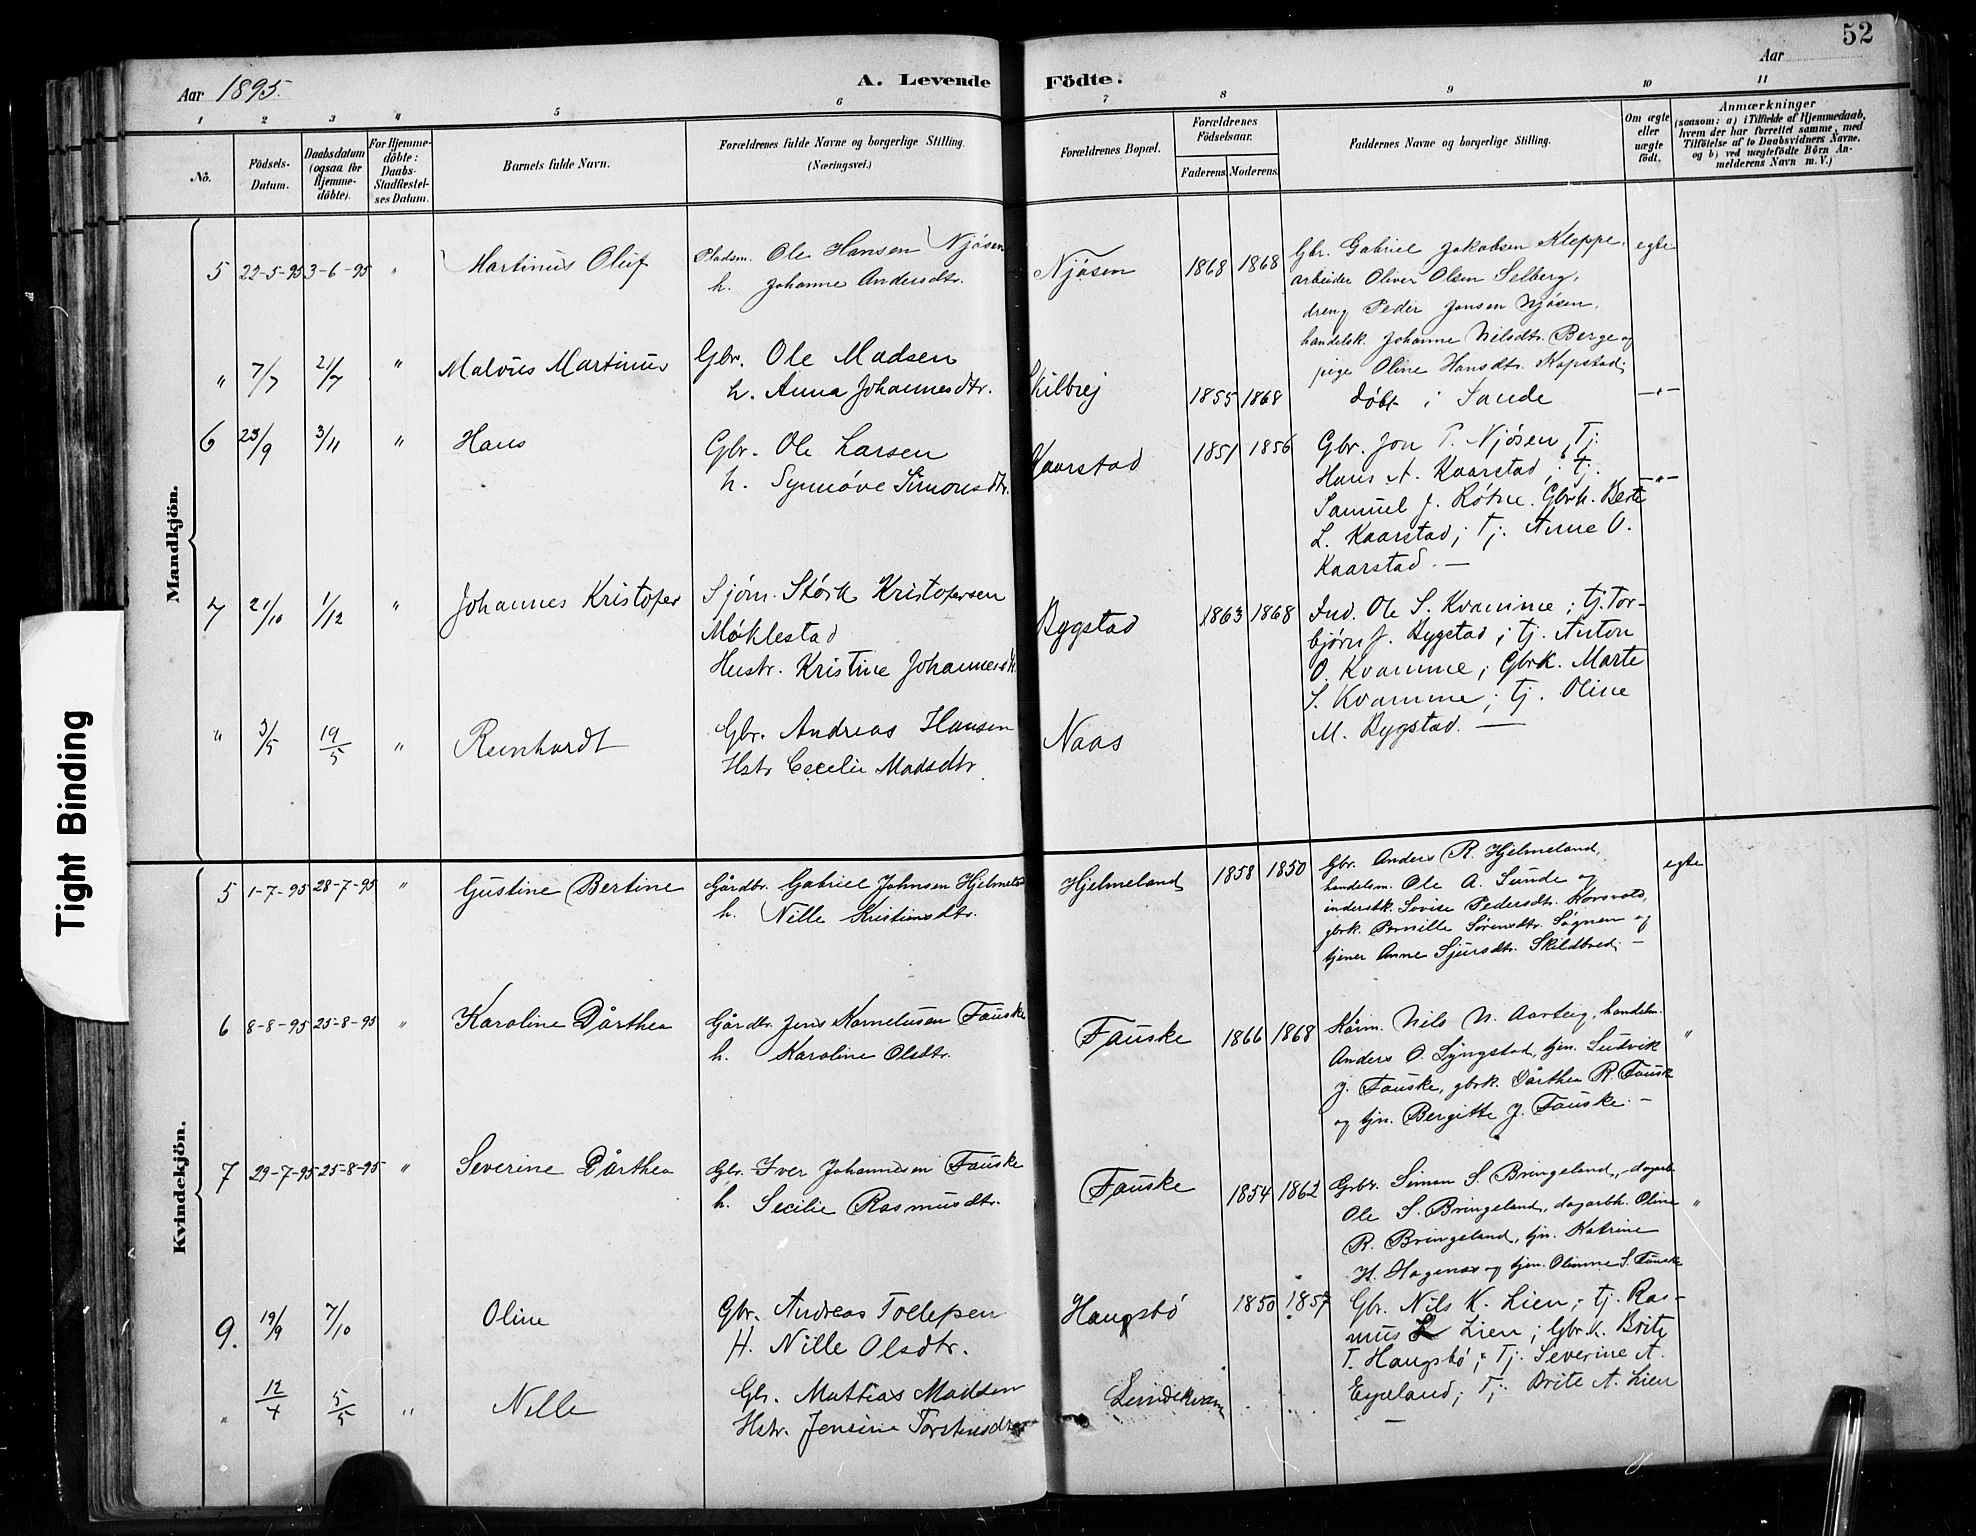 52
Aar 1895.
A. Levende Födte.
Aar
1 2 3 4 5 6 7 8 9 10 11
No.
Födsels-
Datum.
Daabsdatum
(ogsaa for
Hjemme-
döbte).
For Hjemme-
döbte:
Daabs-
Stadfæstel-
ses Datum.
Barnets fulde Navn.
Forældrenes fulde Navne og borgerlige Stilling.
(Næringsvei.)
Forældrenes Bopæl.
Forældrenes
Födselsaar.
Faderens. Moderens.
Faddernes Navne og borgerlige Stilling.
Om ægte
eller
uægte
födt.
Anmærkninger
(saasom: a) i Tilfælde af Hjemmedaab,
hvem der har forrettet samme, med
Tilföielse af to Daabsvidners Navne,
og b) ved uægtefödte Börn An-
melderens Navn m. V.)
Mandkjön.
5 22-5-95 3-6-95 " Martinus Oluf
Pladsm. Ole Hansen Njøsen
h. Johanne Andersdtr.
Njøsen 1868 1868
Gbr. Gabriel Jakobsen Kleppe, egte
arbeider Oliver Olsen Selberg,
dreng Peder Jonsen Njøsen,
handelsk. Johanne Nilsdtr. Berge og
pige Oline Hansdtr. Kopstad.
" 7/7 21/7 " Malvus Martinus
Gbr. Ole Madsen
h. Anna Johannesdtr.
Skilbrej 1855 1868
døbt i Sande —"—
6 23/9 3/11 " Hans
Gbr. Ole Larsen
h. Synnøve Simonsdtr.
Kaarstad 1851 1856
Gbr. Jon T. Njøsen, Tj.
Hans A. Kaarstad; tj. —"—
Samuel J. Røtne. Gbrk. Berte
L. Kaarstad; Tj. Anne O.
Kaarstad. —
7 21/10 1/12 " Johannes Kristofer
Sjøm. Størk Kristofersen
Møklestad
Hustr. Kristine Johannesdtr.
Bygstad 1863 1868
Ind. Ole S. Kvamme; tj. Tor-
bjørn J. Bygstad; tj. Anton
O. Kvamme; Gbrk. Marte
S. Kvamme; tj. Oline
M. Bygstad. —
" 3/5 19/5 " Reinhardt
Gbr. Andreas Hansen
Hstr Cecelie Madsdtr.
Naas
Kvindekjön.
5 1-7-95 28-7-95 " Gustine Bertine
Gårdbr. Gabriel Johnsen Hjelmeland
h. Nille Kristiansdtr.
Hjelmeland 1858 1850
Gbr. Anders R. Hjelmeland, egte
handelsm. Ole A. Sunde og
inderstk. Lovise Pedersdtr. Korsvold,
gbrk. Pernille Sørensdtr. Søgnen og
tjener Anne Sjursdtr. Skildbred. —
6 8-8-95 25-8-95 " Karoline Dårthea
Gårdbr. Jens Kornelusen Fauske
h. Karoline Olsdtr.
Fauske 1866 1868
Kårm. Nils N. Aarteig, handelm.
Anders O. Syngstad, tjn. Ludvik "
J. Fauske, gbrk. Dårthea R. Fauske
og tjn. Bergitte J. Fauske. —
7 29-7-95 25-8-95 " Severine Dårthea
Gbr. Iver Johannesen Fauske
h. Secilie Rasmusdtr.
Fauske 1854 1862
Grbr. Simon S. Bringeland, dagarb.
Ole S. Bringeland, dagarbk. Oline "
R. Bringeland, tjn. Katrine
H. Hagenes og tjen. Olianne S. Fauske
9. 19/9 7/10 Oline
Gbr. Andreas Tollefsen
H. Nille Olsdtr.
Haugsbø 1850 1857
Gbr. Nils K. Lien; tj. Ras-
mus L Lien; Gbr.k. Brite
T. Haugsbø; Tj. Severine A.
Espeland; Tj. Brite A. Lien
—
" 12/4 5/5 " Nille
Gbr. Mattias Madsen
Hstr. Jensine Torstensdtr
Lundekvam
Tight Binding